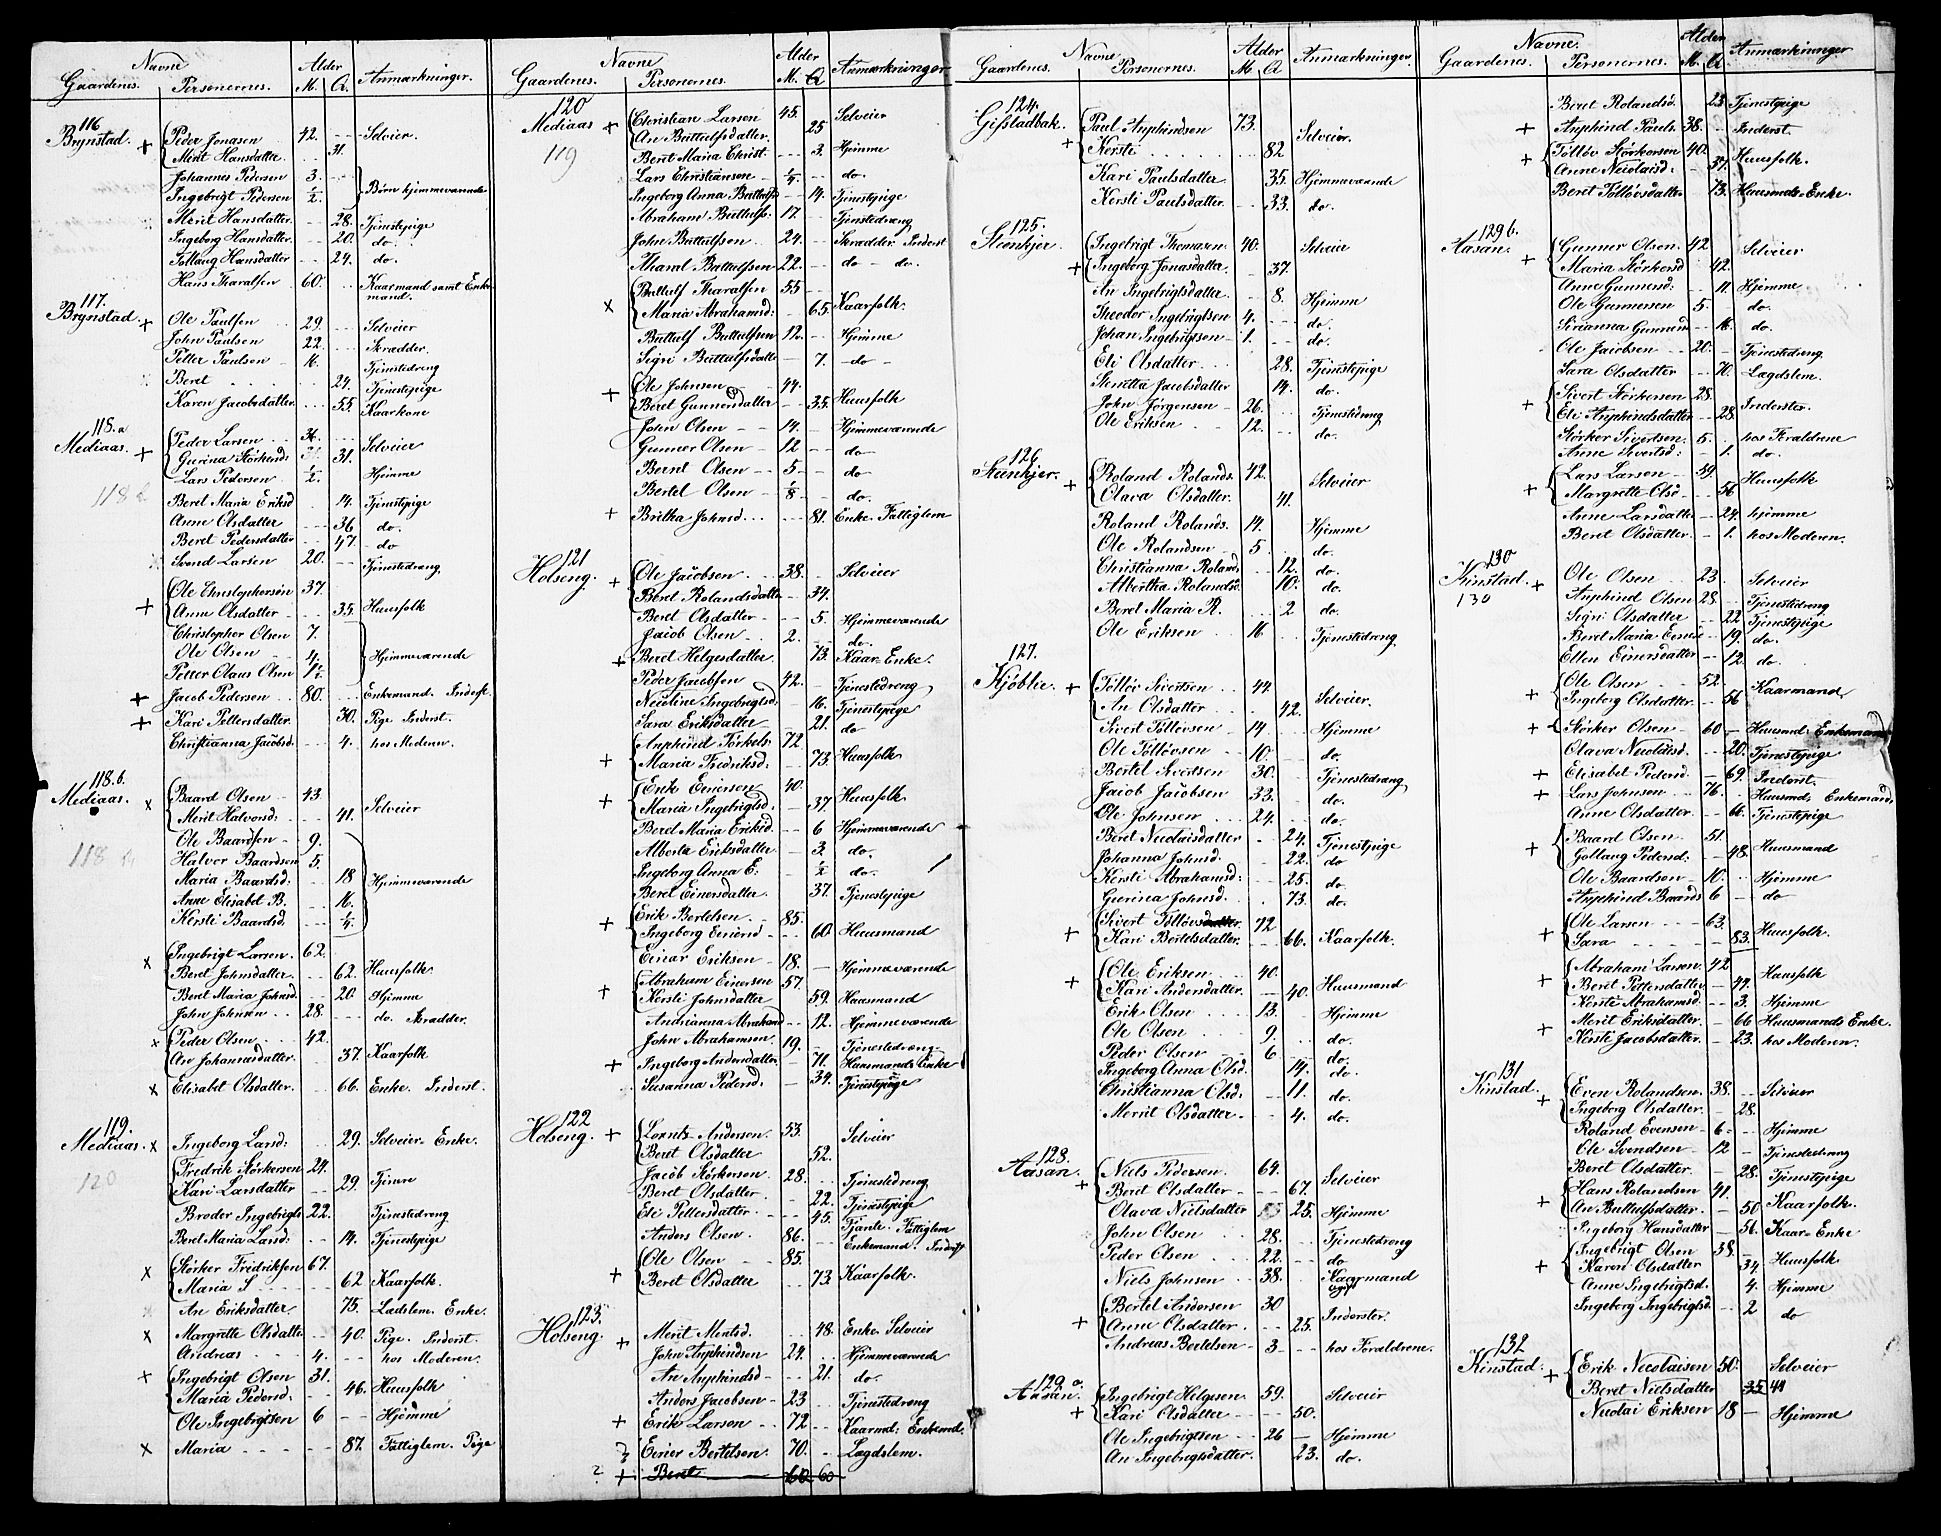 Navne
Alder
Gaardenes. Personernes. M. Q. Anmærkninger.
116
Brynstad. + Peder Jonasen 42. Selveier.
Merit Hansdatter. 31.
Johannes Pedersen 3.
Ingebrigt Pedersen ½. Børn hjemmeværende
Merit Hansdatter. 28. Tjenestepige
Ingeborg Hansdatter. 20. do.
Sollaug Hansdatter 24. do.
Hans Tharalsen 60. Kaarmand samt Enke
mand.
117.
Brynstad. + Ole Paulsen 29. Selveier
John Paulsen 22. Skrædder.
Petter Paulsen 16. Tjenestedreng
Beret 24. Tjenestepige
Karen Jacobsdatter. 55. Kaarkone
118.a
Mediaas. + Peder Larsen 34.
Gurina Størkersd. 31. Selveier
Lars Pedersen ½. Hjemme
118
Beret Maria Eriksd 14. Tjenestepige
Anne Olsdatter 36 do.
Beret Pedersdatter 47. do
Svend Larsen 20. Tjenestedreng
Ole Christophersen 37.
+ Anne Olsdatter 35. Huusfolk
Christopher Olsen 7.
Ole Olsen 4.
Petter Claus Olsen Hjemmeværende
+ Jacob Pedersen 80. Enkemand. Inderst.
+ Kari Pettersdatter. 30. Pige Inderst.
Christianna Jacobsd. 4. hos Moderen.
118.b.
Mediaas. x Baard Olsen 43.
Merit Halvorsd. 41. Selveier
Ole Baardsen 9.
118
Halvor Baardsen 5.
Maria Baardsd: 18 Hjemmeværende
Anne Elisabet B. 16.
Kersti Baardsd. ¼.
Ingebrigt Larsen. 62.
x Beret Johnsdatter. 62. Huusfolk.
Beret Maria Johnsd. 20. Hjemme
John Johnsen 28. do. Skrædder.
x Peder Olsen 42.
An Johannesdatter. 37. Kaarfolk
x Elisabet Olsdatter. 66. Enke Inderst.
119.
Mediaas. x Ingeborg Larsd: 29. Selveier Enke.
120
Fredrik Størkersen 24.
Kari Larsdatter 29. Tjenere
Broder Ingebrigts 22. Tjenestedreng
Beret Maria Larsd: 14. Tjenestepige
Størker Fredriksen 67.
x Maria S 62. Kaarfolk.
An Eriksdatter 75. Ladslem. Enke.
x Margrette Olsdatter 40. Pige Inderst.
Andreas 4. hos Moderen.
+ Ingebrigt Olsen 31.
Maria Pedersd. 46. Huusfolk
Ole Ingebrigtsen 6 Hjemme
x Maria 87. Fattiglem. Pige
Navne
Alder
Gaardenes. Personernes. M. Q. Anmærkninger
120
Mediaas + Christian Larsen 45. Selveier
119
An Buttulfsdatter. 25
Beret Maria Christ. 3. Hjemme
Lars Christiansen ¼. do.
Ingeborg Anna Buttulfs 14. Tjenestepige
Abraham Buttulfs. 17. Tjenestedreng
John Buttulfsen 24. Skrædder Inderst
Tharal Buttulfsen 22. do do.
Buttulf Tharalsen 55
x Maria Abrahamsd. 65. Kaarfolk.
Buttulf Buttulfsen 12. Hjemme
Sigri Buttulfsdatte 7. do
Ole Johnsen 44.
+ Beret Gunnersdatter 35. Huusfolk
John Olsen 14. Hjemmeværende
Gunner Olsen 12 do
Bernt Olsen 5 do
Bertel Olsen ⅛ do.
+ Britha Johnsd. 81. Enke Fattiglem
121
Holseng. + Ole Jacobsen 38. Selveier
Beret Rolandsdatter 34.
Beret Olsdatter 5. Hjemmeværende
Jacob Olsen 2. do.
+ Beret Helgesdatter. 73. Kaar Enke.
Peder Jacobsen 42. Tjenestedreng
Nicoline Ingebrigtsd. 16. Tjenestepige
Sara Eriksdatter 21. do
Anphind Torkels. 72.
+ Maria Fredriksd: 73. Huusfolk
Erik Einersen 40.
+ Maria Ingebrigtsd. 37. Huusfolk
Beret Maria Eriksd. 6 Hjemmeværende
Alberta Eriksdatter 3. do.
Ingeborg Anna E: ½ do.
Beret Einersdatter. 37. Tjenestepige
Erik Bertelsen. 85.
+ Ingeborg Einersd 60. Huusmand
Einar Eriksen 18. Hjemmeværende
Abraham Einersen 57.
+ Kersti Johnsdatter 59. Huusmand
Andrianna Abrahamsd 12. Hjemmeværende
John Abrahamsen. 19. Tjenestedreng
+ Ingeborg Andersdatter 71. Huusmands Enke
Susanna Pedersd: 34. Tjenestepige
122
Holseng. + Lorents Andersen. 53. Selveier
Beret Olsdatter 52.
Jacob Størkersen 28. Tjenestedreng
Beret Olsdatter. 22. Tjenestepige
Ele Pettersdatter 45. Tjente. Fattiglem
Anders Olsen. 86. Enkemand. Inderst
Ole Olsen 85.
+ Beret Olsdatter 73. Kaarfolk.
123.
Holseng. + Merit Mentsd. 48. Enke Selveier
John Anphindsen 24. Hjemmeværende
An Anphindsd 21. do.
Anders Jacobsen 23 Tjenestedreng
+ Erik Larsen 72. Kaarmd: Enkemd.
? Einer Bertelsen. 70. Lægdslem.
? + Beret 60 60
Navne
Alder
Gaardenes. Personernes. M. Q Anmærkninger.
124.
Gifstadbak. Paul Anphindsen 73.
+ Kersti 82 Selveier.
Kari Paulsdatter 35. Hjemmeværende
Kersti Paulsdatter. 33. do.
125.
Steenkjer. Ingebrigt Thomasen 40. Selveier
+ Ingeborg Jonasdatter. 37.
An Ingebrigtsdatter. 8. Hjemme
Theodor Ingebrigtsen 4. do.
Johan Ingebrigtsen 1. do.
Eli Olsdatter 28. Tjenestepige
Stenetta Jacobsdatter 14. do.
John Jørgensen 26. Tjenestedreng
Ole Eriksen 12. do.
126
Steenkjer. + Roland Rolands. 42. Selveier
Olava Olsdatter. 41.
Roland Rolands. 14. Hjemme
Ole Rolandsen 5. do.
Christianna Rolands. 12. do.
Albertha Rolandsd. 10. do.
Beret Maria R. 2 do.
Ole Eriksen 16 Tjenestedreng
127.
Kjøblie. + Tolløv Sivertsen 44. Selveier.
An Olsdatter 42.
Sivert Tolløvsen 14 Hjemme
Ole Tolløvsen 10. do.
Bertel Sivertsen 30. Tjenestedreng
Jacob Jacobsen 33. do.
Ole Johnsen 24. do.
Beret Nicolaisdatter 24. Tjenestepige
Johanna Johnsd. 22. do
Kersti Abrahamsd: 25. do.
Gurina Johnsd. 73. do.
Sivert Tolløvsdatter 72
+ Kari Bertelsdatter. 66. Kaarfolk.
+ Ole Eriksen 40.
Kari Andersdatter. 40. Huusmand
Erik Olsen 13. Hjemme
Ole Olsen 9. do.
Peder Olsen 6 do.
Ingeborg Anna Olsd. 14. do.
Christianna Olsd. 11. do
Merit Olsdatter. 4. do.
128.
Aasan. + Niels Pedersen. 64. Selveier
Beret Olsdatter 67.
Olava Nielsdatter 25. Hjemme
John Olsen 28. Tjenestedreng
Peder Olsen 22. do
Niels Johnsen 38. Kaarmand
Bertel Andersen 30
+ Anne Olsdatter. 25. Inderster.
Andreas Bertelsen 3 hos Foraldrene.
129 a.
Aasan. Ingebrigt Helgesen 59. Selveier
+ Kari Olsdatter 50.
Ole Ingebrigtsen 26 Hjemme
An Ingebrigtsdatter. 23. do.
Navne.
Alder
Gaardenes. Personernes. M. Q. Anmærkninger
Beret Rolandsd. 25 Tjenestepige
+ Anphind Pauls. 38. Inderst.
+ Tolløv Størkersen 40.
Anne Nicolaisd. 37. Huusfolk.
Beret Tolløvsdatter 73. Huusmands Enke.
129 b.
Aasan. + Gunner Olsen. 42. Selveier
Maria Størkersd. 42.
Anne Gunnersd. 11. Hjemme
Ole Gunnersen 5. do.
Sirianna Gunnersd 16. do.
Ole Jacobsen 20. Tjenestedreng
Sara Olsdatter 70. Lægdslem.
Sivert Størkersen 28.
+ Eli Anphindsdatter 28. Inderster.
Størker Sivertsen. 5. hos Foraldrene
Anne Sivertsd: 1. do.
Lars Larsen 49. Huusfolk
+ Margrette Olsd. 56.
Anne Larsdatter 24. hjemme
Beret Olsdatter. 1. hos Moderen.
130
Kinstad. + Ole Olsen 23. Selveier
130
Anphind Olsen 28. Tjenestedreng
Sigri Olsdatter 22. Tjenestepige
Beret Maria 19. do.
Ellen Einersdatter 12. do.
+ Ole Olsen 52. Kaarmand
Ingeborg Olsdatter. 56
+ Størker Olsen 60 Huusmd. Enkemand
Olava Nicolaisd. 20. Tjenestepige
+ Elisabet Pedersd. 69. Inderst.
+ Lars Johnsen 76. Huusmds Enkemand
Anne Olsdatter 66. Tjenestepige
Baard Olsen 51.
+ Gollaug Pedersd. 48. Huusmand
Ole Baardsen 10. Hjemme
Anphind Baards 6 do
+ Ole Larsen 63.
Sara 83. Huusfolk.
+ Abraham Larsen 42
Beret Pettersdatter 44. Huusfolk
Kersti Abrahamsd. 3. Hjemme
+ Merit Eriksdatter 66 Huusmands Enke.
Kersti Jacobsdatter. 23. hos Moderen.
131
Kinstad. + Even Rolandsen. 38. Selveier
Ingeborg Olsdatter. 28.
Roland Evensen 6 Hjemme
Ole Svendsen 12 Tjenestedreng
Beret Olsdatter. 28. Tjenestepige
+ Hans Rolandsen 41.
An Buttulfsdatter. 50 Kaarfolk.
Ingeborg Hansdatter 56. Kaar Enke
+ Ingebrigt Olsen 38.
Karen Olsdatter 34. Huusfolk
Anne Ingebrigtsd. 4. Hjemme
Ingeborg Ingebrigtsd. 2 do
132
Kinstad. + Erik Nicolaisen 50. Selveier
Beret Nielsdatter 35 44
Nicolai Eriksen 18 Hjemme